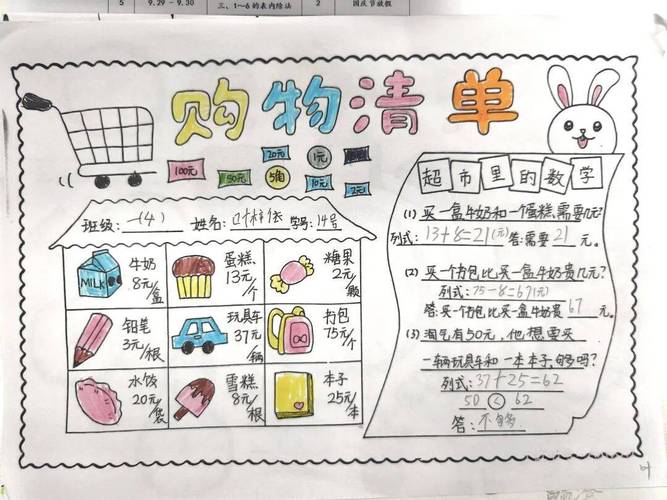 5 9.29 - 9.30 三、1～6 的表内除法 2 国庆节放假
购物清单
100元 50元 20元 5角 1元 10元 2元
班级：一(4) 姓名： 学号：14号
MILK
牛奶 8元/盒
蛋糕 13元/个
糖果 2元/颗
铅笔 3元/根
玩具车 37元/辆
书包 75元/个
水饺 20元/袋
雪糕 8元/根
本子 25元/本
超市里的数学
(1) 买一盒牛奶和一个蛋糕需要几元?
列式：13+8=21(元) 答:需要 21 元。
(2) 买一个书包比买一盒牛奶贵几元?
列式：75-8=67(元)
答:买一个书包比买一盒牛奶贵 67 元。
(3) 淘气有50元，他想要买
一辆玩具车和一本本子,够吗?
列式：37+25=62
50 < 62
答：不够